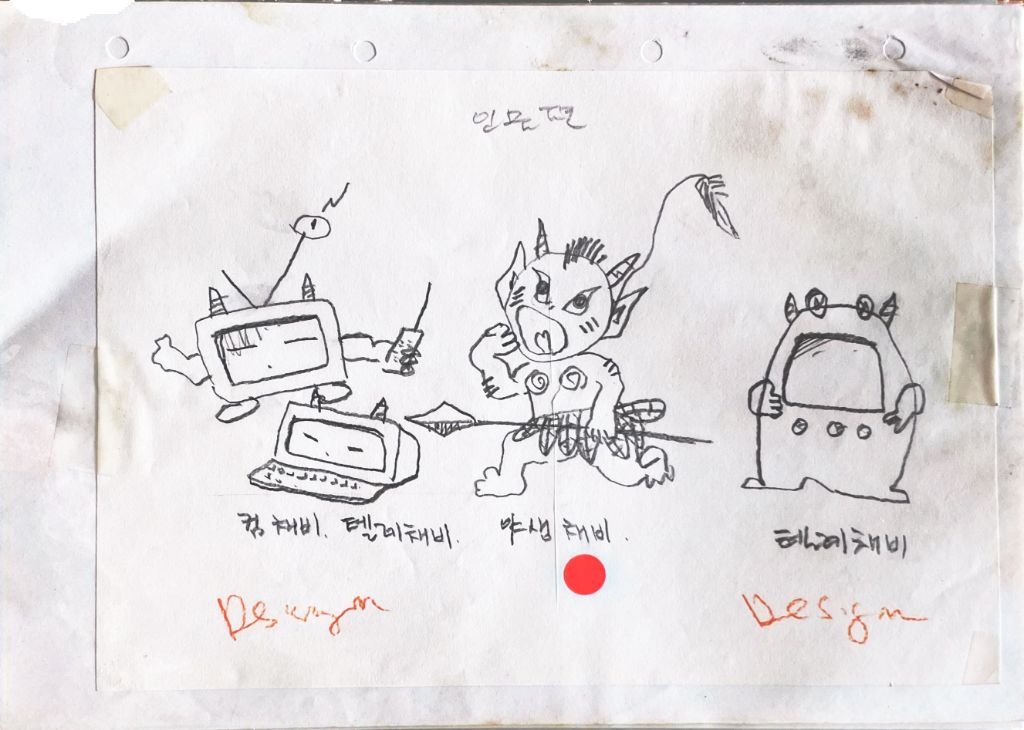 인물편
컴채비. 텔레채비.
야생채비.
텔레채비
Design
Design